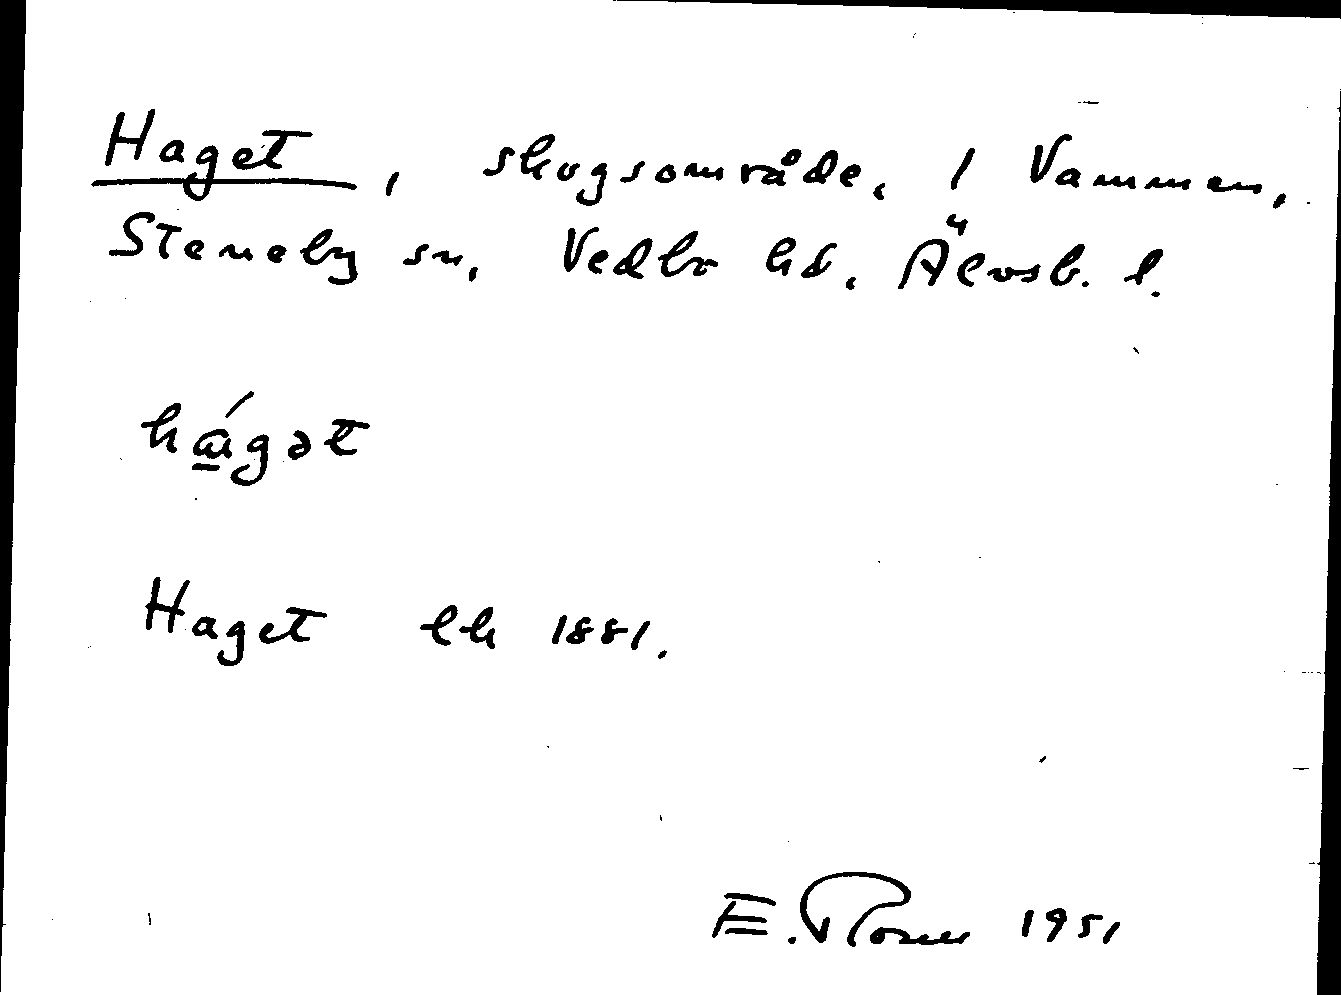 Haget, skogsområde, 1 Vammen,
Steneby sn, Vedbo hd, Älvsb. l.
hágət
Haget ek 1881.
E. Rosen 1951